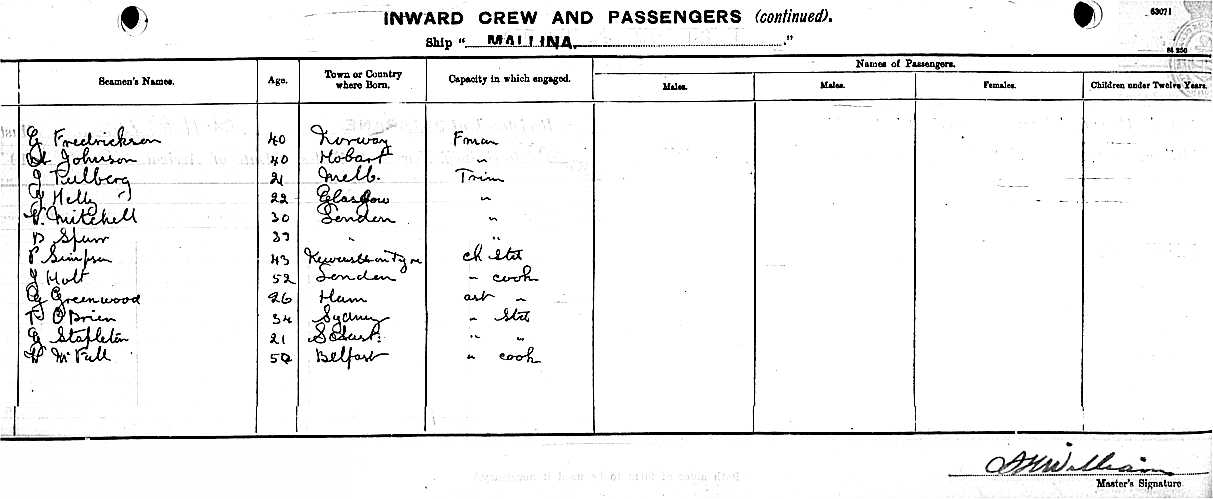 INWARD CREW AND PASSENGERS (continued).
63071
Ship "MALLINA."
Seamen's Names. Age. Town or Country where Born. Capacity in which engaged. Names of Passengers.
Males. Males. Females. Children under Twelve Years.
G Fredrickson 40 Norway Fman
Johnson 40 Hobart "
J 21 Melb. Trim
Kelly 22 Glasgow "
V. Mitchell 30 London "
D Spurr 39 " "
P Simpson 43 Newcastle on Tyne ch Std
J Holt 52 London " cook
G Greenwood 26 Ham asst "
T O'Brien 34 Sydney " Std
G Stapleton 21 "  "
H McFall 50 Belfast " cook
Master's Signature